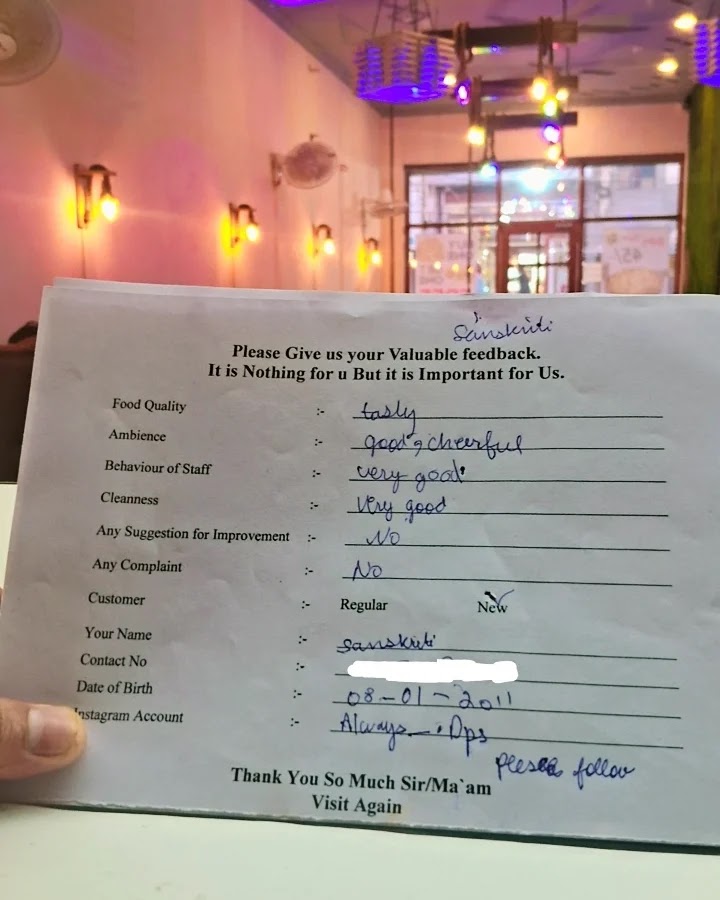 Sanskriti
Please Give us your Valuable feedback.
It is Nothing for u But it is Important for Us.
Food Quality :- tasty
Ambience :- good, cheerful
Behaviour of Staff :- very good
Cleanness :- Very good
Any Suggestion for Improvement :- No
Any Complaint :- No
Customer :- Regular New
Your Name :- Sanskriti
Contact No :-
Date of Birth :- 08-01-2011
Instagram Account :- Always_.Dps
please follow
Thank You So Much Sir/Ma`am
Visit Again